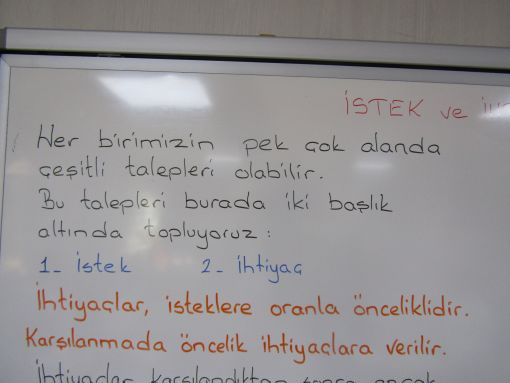 İSTEK ve
Her birimizin pek çok alanda
çeşitli talepleri olabilir.
Bu talepleri burada iki başlık
altında topluyoruz :
1- istek 2- ihtiyaç
İhtiyaçlar, isteklere oranla önceliklidir.
Karşılanmada öncelik ihtiyaçlara verilir.
İhtiyaçlar karşılandıktan sonra ancak